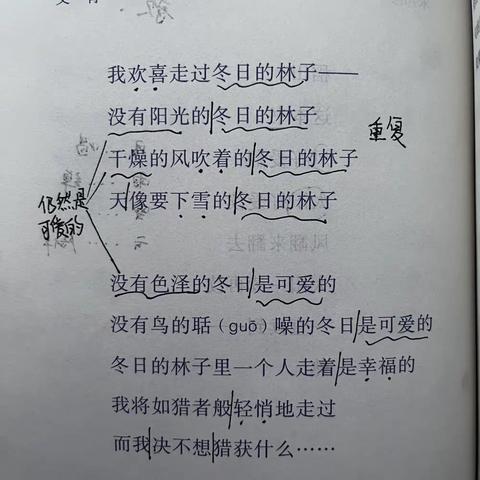 我欢喜走过冬日的林子——
没有阳光的冬日的林子
重复
干燥的风吹着的冬日的林子
天像要下雪的冬日的林子
仍然是
可爱的
风翻来翻去
没有色泽的冬日是可爱的
没有鸟的聒（guō）噪的冬日是可爱的
冬日的林子里一个人走着是幸福的
我将如猎者般轻悄地走过
而我决不想猎获什么……